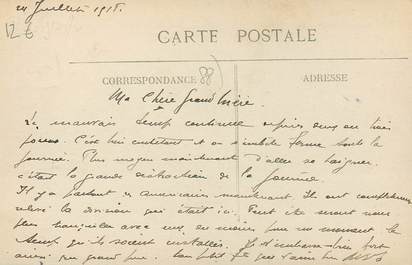 24 Juillet 1918.
126
CARTE POSTALE
CORRESPONDANCE 88 ADRESSE
Ma Chère Grand'Mère.
Le mauvais temps continue depuis deux ou trois
jours. C'est bien embêtant et on s'embête ferme toute la
journée. Plus moyen maintenant d'aller se baigner.
c'était la grande distraction de la journée.
Il y a partout des américains maintenant. Ils ont complètement
relevé la division qui était ici. Peut être serons nous
plus tranquilles avec eux, du moins pour un moment le
temps qu'ils soient installés. Je t'embrasse bien fort
ainsi que grand père. Ton petit